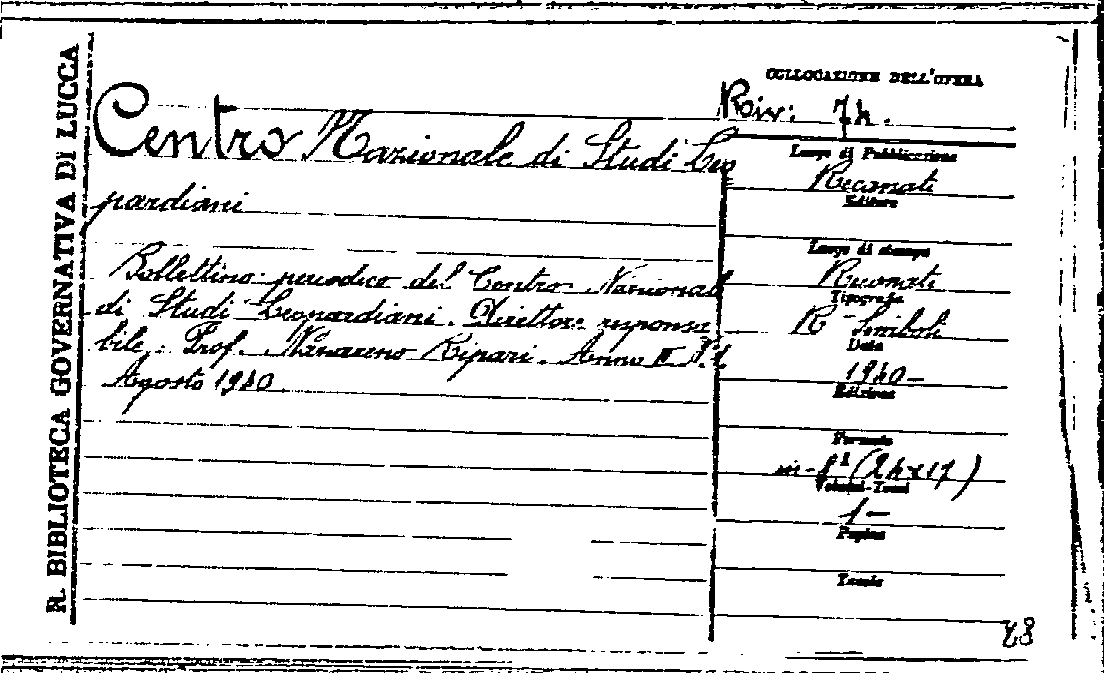 R. BIBLIOTECA GOVERNATIVA DI LUCCA
Centro Nazionale di Studi Leo
pardiani
Bollettino periodico del Centro Nazional
di Studi Leopardiani. Direttore responsa
bile: Prof. Nazareno Ripari. Anno II N. 1
Agosto 1940
COLLOCAZIONE DELL'OPERA
Riv: 74.
Luogo di Pubblicazione
Recanati
Editore
Luogo di stampa
Recanati
Tipografia
R. Simboli
Data
1940-
Edizione
Formato
in-8° (24x17)
Volumi-Tomi
1-
Pagine
Tavole